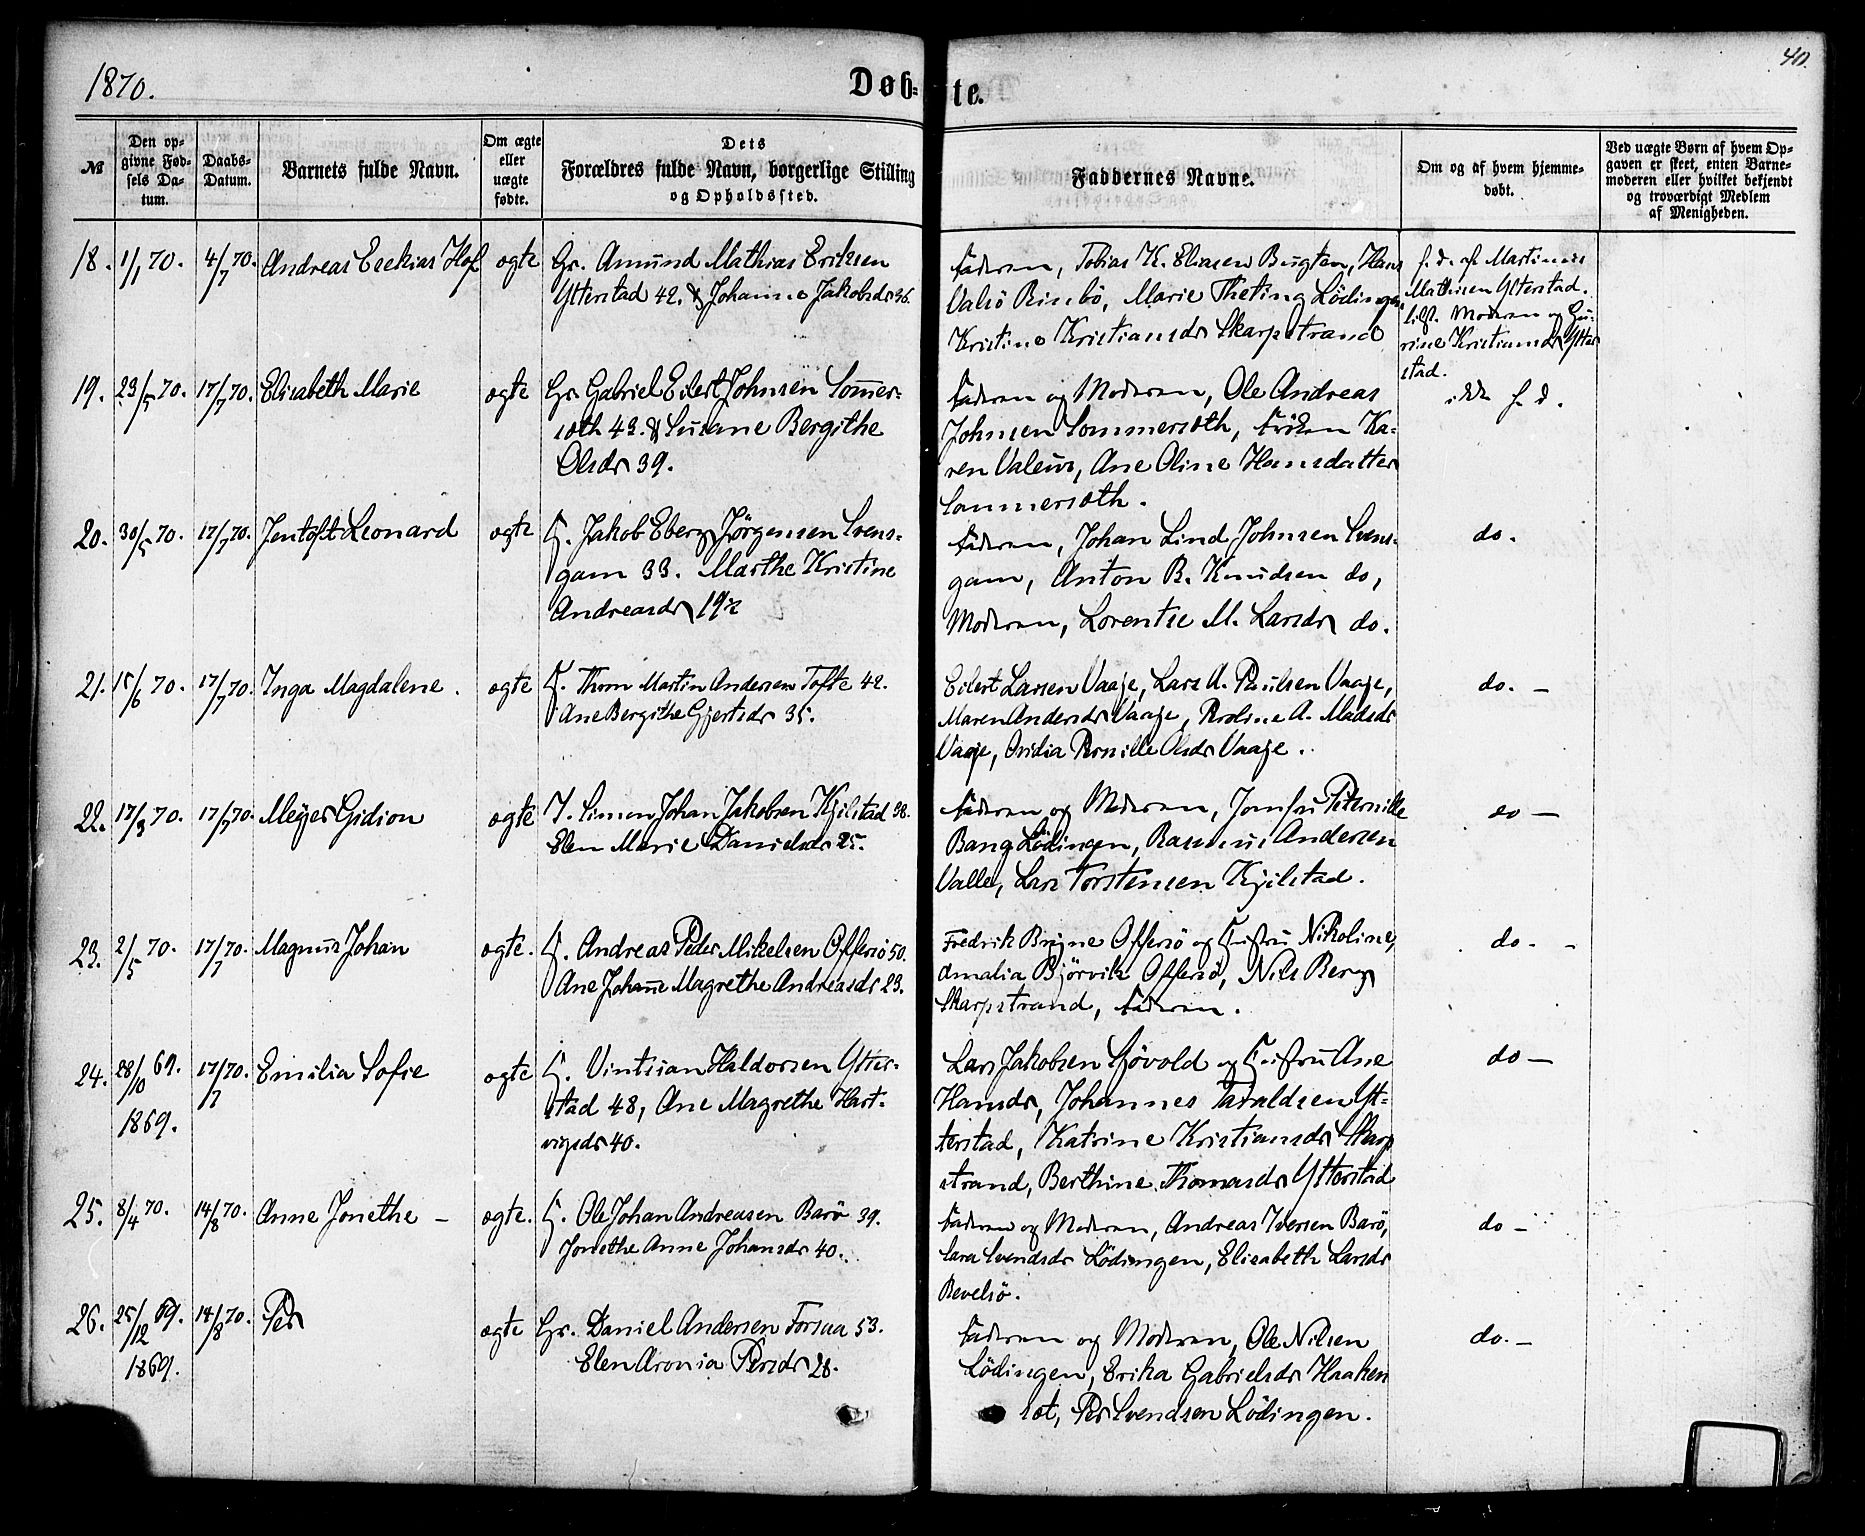 1870.
Døb-
te.
40.
№
Den op-
givne Fød-
sels Da-
tum.
Daabs-
Datum.
Barnets fulde Navn.
Om ægte
eller
uægte
fødte.
Dets
Forældres fulde Navn, borgerlige Stilling
og Opholdssted.
Faddernes Navne.
Om og af hvem hjemme-
døbt.
Ved uægte Børn af hvem Op-
gaven er skeet, enten Barne-
moderen eller hvilket bekjendt
og troværdigt Medlem
af Menigheden.
18. 1/1 70. 4/7 70. Andreas Esekias Hof ægte Gr. Amund Mathias Eriksen
Ytterstad 42. & Johanne Jakobsdr 36.
Faderen, Tobias K. Eliasen Bugten, Hans
Valsö Rinbö, Marie Theting Lödingen,
Kristine Kristiansdr Skarpstrand
h. d. af Martinus
Mathisen Ytterstad.
Moderen og Gu-
rine Kristiansdr Ytter
stad.
19. 23/5 70. 17/7 70. Elisabeth Marie ægte Gr. Gabriel Eilert Johnsen Sommer-
sæth 43. & Susane Bergithe
Olsdr 39.
Faderen og Moderen, Ole Andreas
Johnsen Sommersæth, Fröken Ka-
ren Valeur, Ane Oline Hansdatter
Sommersæth.
ikke h. d.
20. 30/5 70. 17/7 70. Jentoft Leonard ægte G. Jakob Eberg Jörgensen Svens-
gam 33. Marthe Kristine
Andreasdr 19½
Faderen, Johan Lind Johnsen Svens-
gam, Anton B. Knudsen do,
Moderen, Lorentse M. Larsdr do.
do.
21. 15/6 70. 17/7 70. Inga Magdalene. ægte G. Thom Martin Andersen Tofte 42.
Ane Bergithe Gjertsdr 35.
Eilert Larsen Vaaje, Lars A. Paulsen Vaaje,
Maren Andersdr Vaaje, Proline A. Madsdr
Vaaje, Ovidia Pernille Olsdr Vaaje.
do. —
22. 17/3 70. 17/7 70. Meÿer Gidion ægte I. Simon Johan Jakobsen Kjilstad 38.
Elen Marie Danielsdr 25.
Faderen og Moderen, Jomfru Peternille
Bang Lödingen, Rasmus Andersen
Valle, Lars Torstensen Kjilstad.
do —
23. 2/5 70. 17/7 70. Magnus Johan ægte. G. Andreas Peder Mikelsen Offersö 50.
Ane Johanne Magrethe Andreasdr 23.
Fredrik Brÿne Offersö og Hustru Nikoline,
Amalia Björvik Offersö, Nils Berg
Skarpstrand, Faderen.
do. -
24. 28/10 69. 17/7 70. Emilia Sofie ægte G. Vintsian Haldorsen Ytter-
1869.
stad 48, Ane Magrethe Hart-
vigsdr 40.
Lars Jakobsen Sjövold og Hustru Ane
Hansdr, Johannes Taraldsen Yt-
terstad, Katrine Kristiansdr Skarp
strand, Berthine Thomasdr Ytterstad
do —
25. 8/4 70. 14/8 70. Anne Jonethe — ægte. G. Ole Johan Andreasen Barö 39.
Jonethe Anne Johansdr 40.
Faderen og Moderen, Andreas Iversen Barö,
Sara Svendsdr Lödingen, Elisabeth Larsdr
Revelsö.
do —
26. 25/12 69. 14/8 70. Per ægte Gr. Daniel Andersen Forsaa 53.
1869.
Elen Aronia Persdr 28.
Faderen og Moderen, Ole Nilsen
Lödingen, Erika Gabrielsdr Haaken
sæt, Per Svendsen Lödingen.
do. —